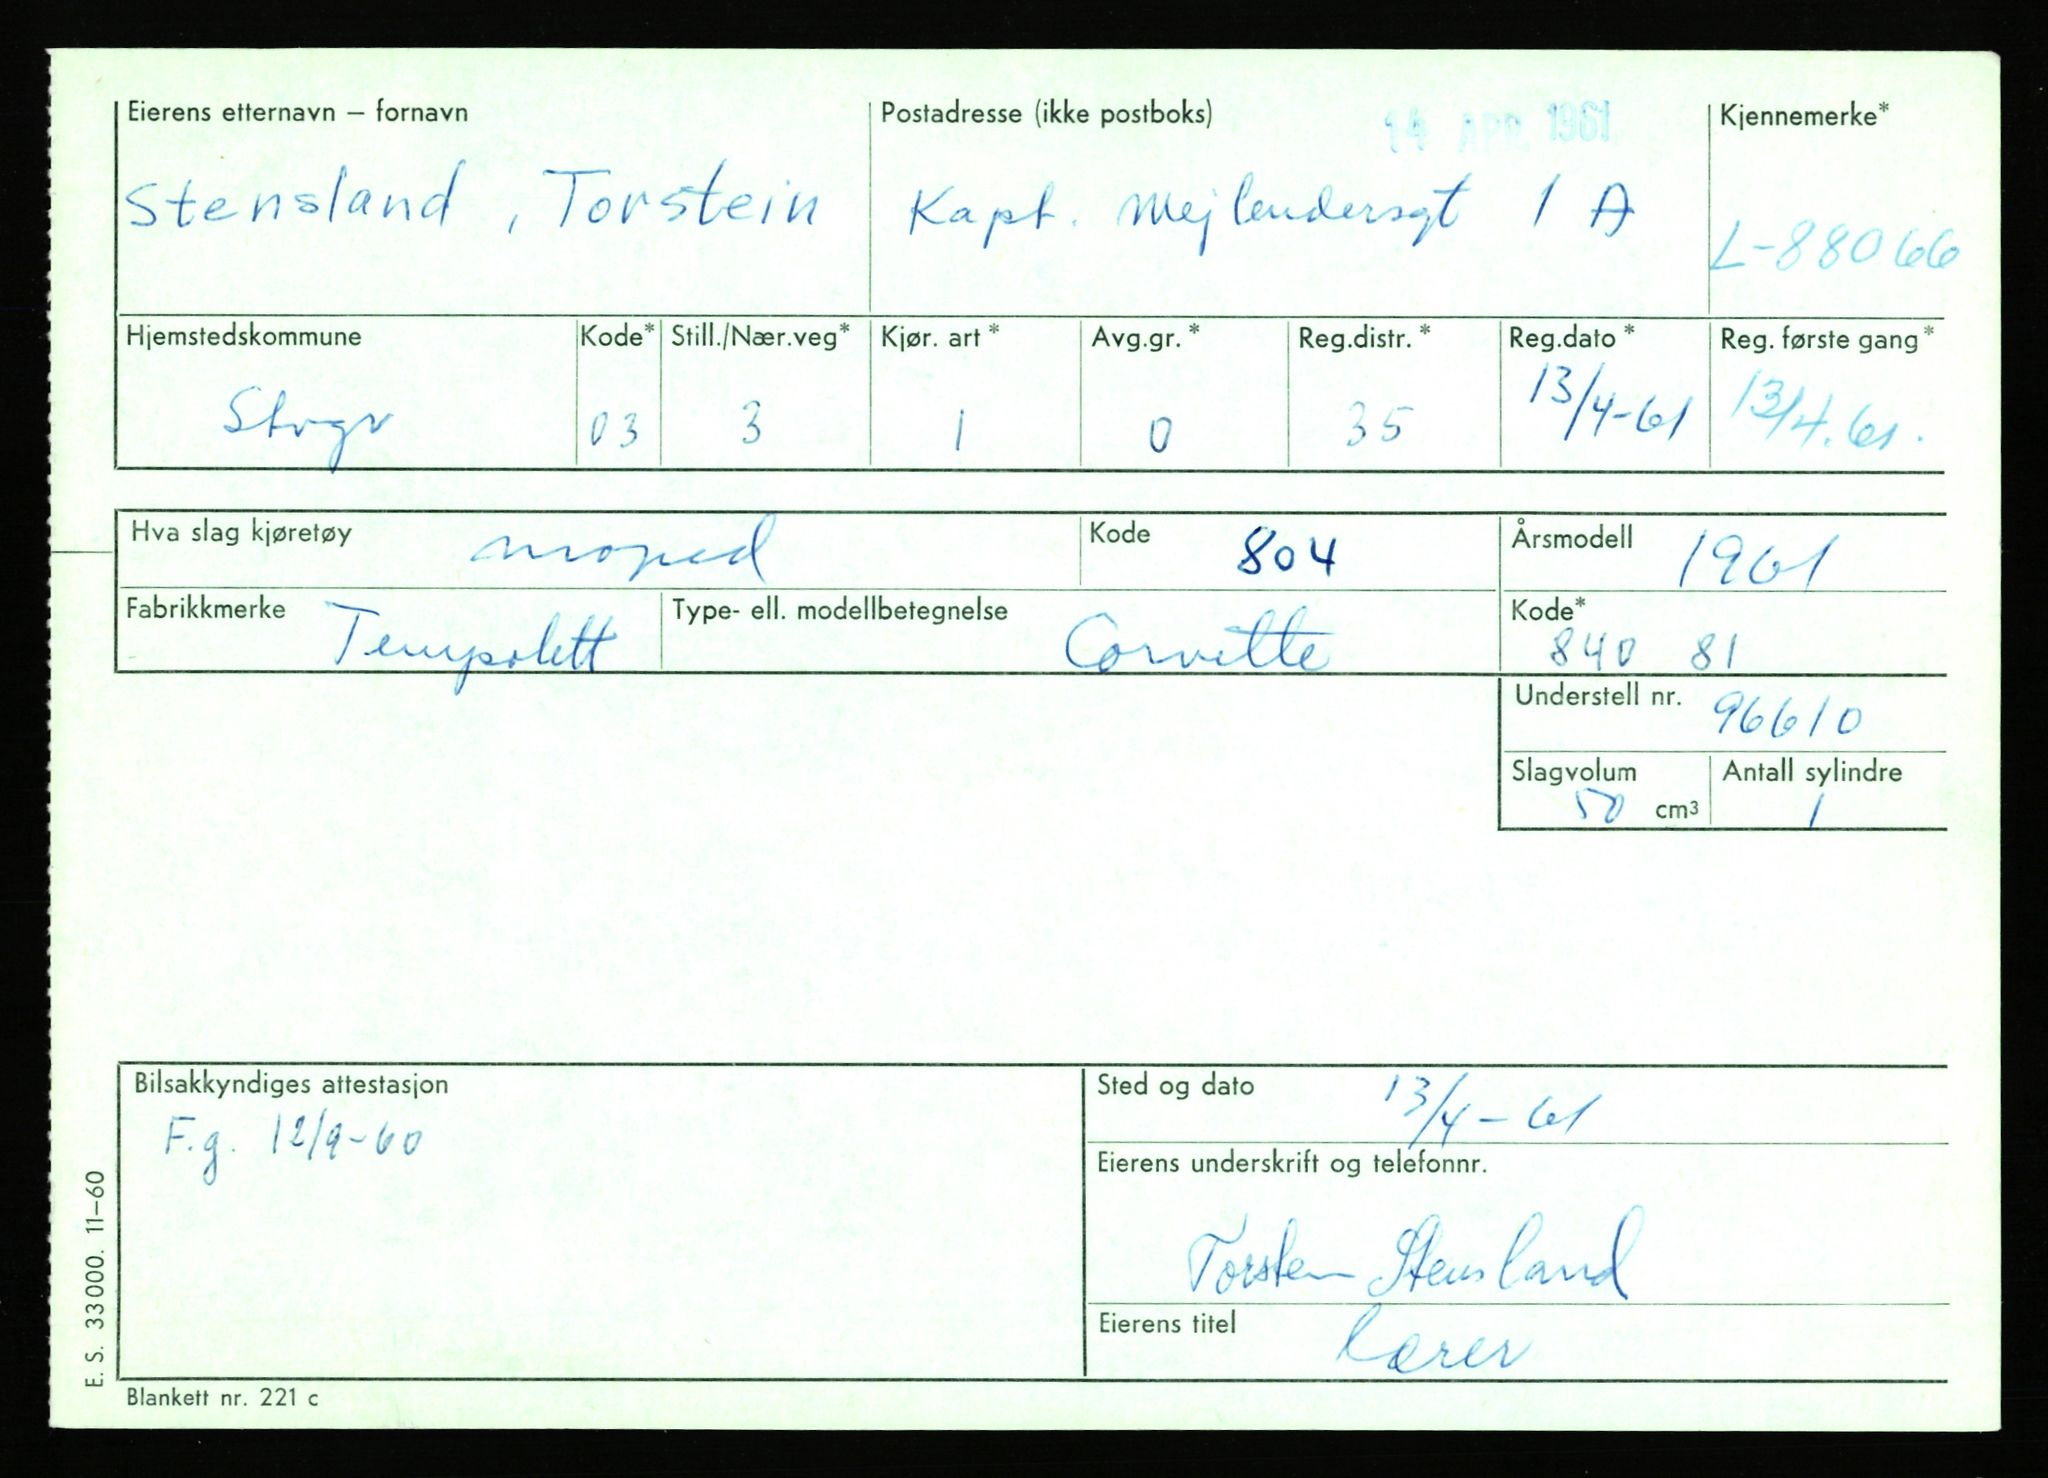 Eierens etternavn – fornavn
Stensland, Torstein
Postadresse (ikke postboks)
14 APR. 1961
Kapt. Mejlendersgt 1 A
Kjennemerke*
L-88066
Hjemstedskommune
Stvgr
Kode*
03
Still./Nær.veg*
3
Kjør. art*
1
Avg.gr.*
0
Reg.distr.*
35
Reg.dato*
13/4-61
Reg. første gang*
13/4.61.
Hva slag kjøretøy
moped
Kode
804
Årsmodell
1961
Fabrikkmerke
Tempolett
Type- ell. modellbetegnelse
Corvette
Kode*
840 81
Understell nr.
96610
Slagvolum
50 cm³
Antall sylindre
1
Bilsakkyndiges attestasjon
F.g. 12/9-60
Sted og dato
13/4-61
Eierens underskrift og telefonnr.
Torstein Stensland
Eierens titel
Lærer
E. S. 33000. 11–60
Blankett nr. 221 c